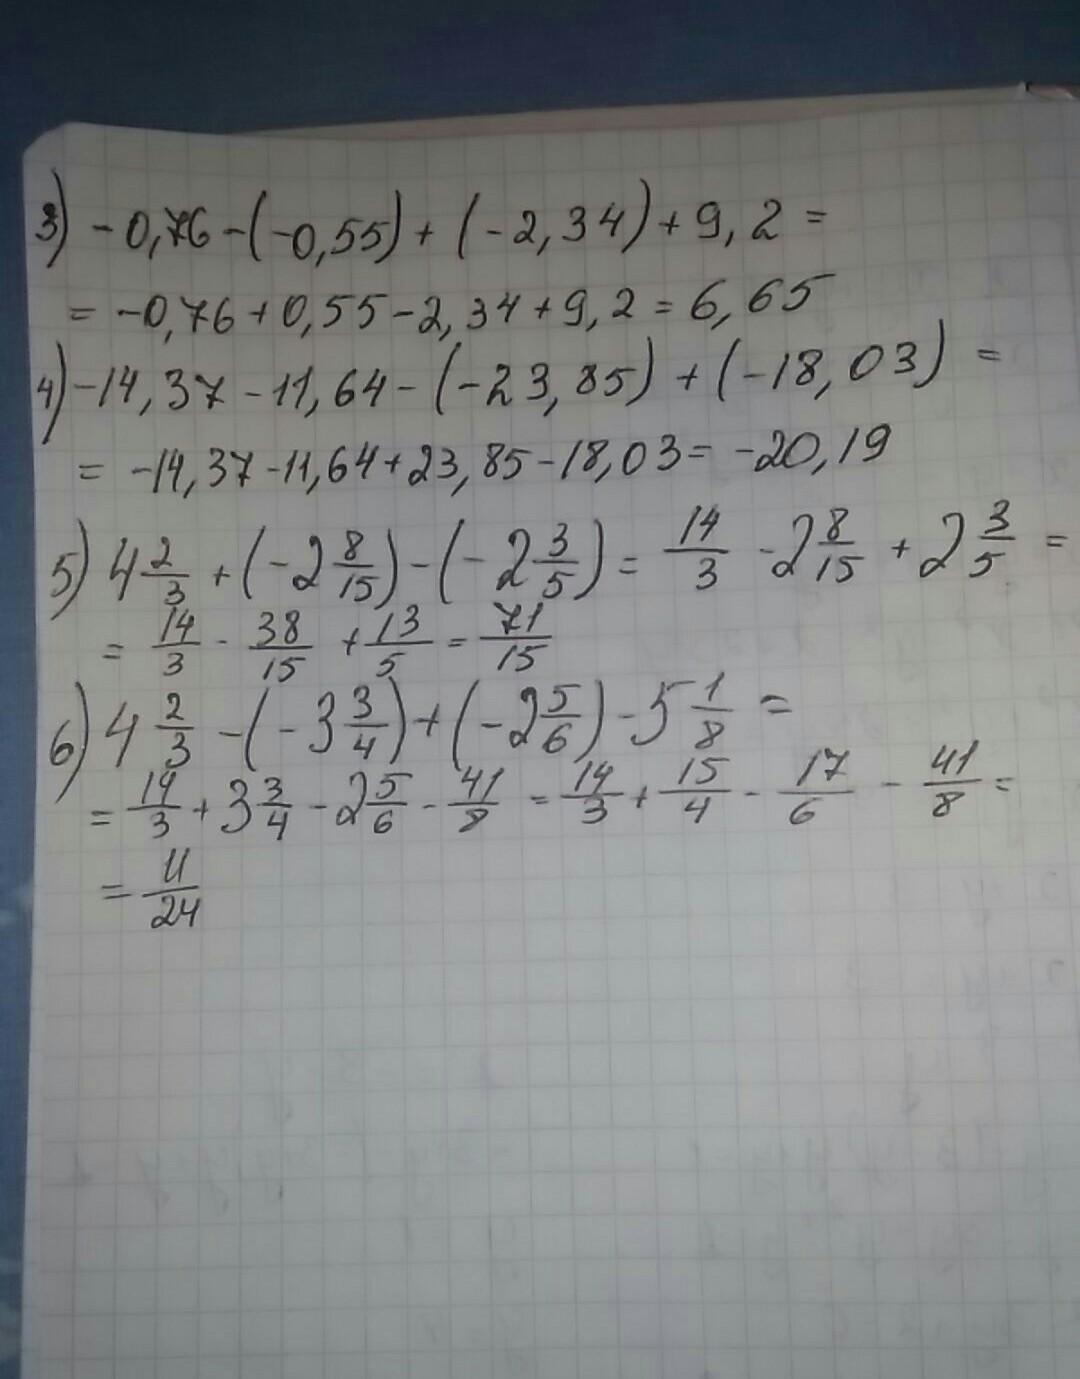 3) -0,76-(-0,55)+(-2,34)+9,2=
= -0,76+0,55-2,34+9,2=6,65
4) -14,37-11,64-(-23,85)+(-18,03)=
= -14,37-11,64+23,85-18,03=-20,19
5) 4 2/3 + (-2 8/15) - (-2 3/5) = 14/3 - 2 8/15 + 2 3/5 =
= 14/3 - 38/15 + 13/5 = 71/15
6) 4 2/3 - (-3 3/4) + (-2 5/6) - 5 1/8 =
= 14/3 + 3 3/4 - 2 5/6 - 41/8 = 14/3 + 15/4 - 17/6 - 41/8 =
= 11/24